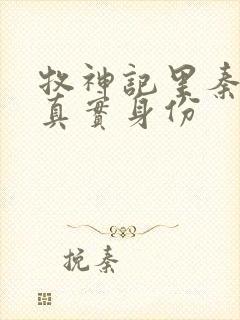 牧神記里秦
真實身份
挽秦